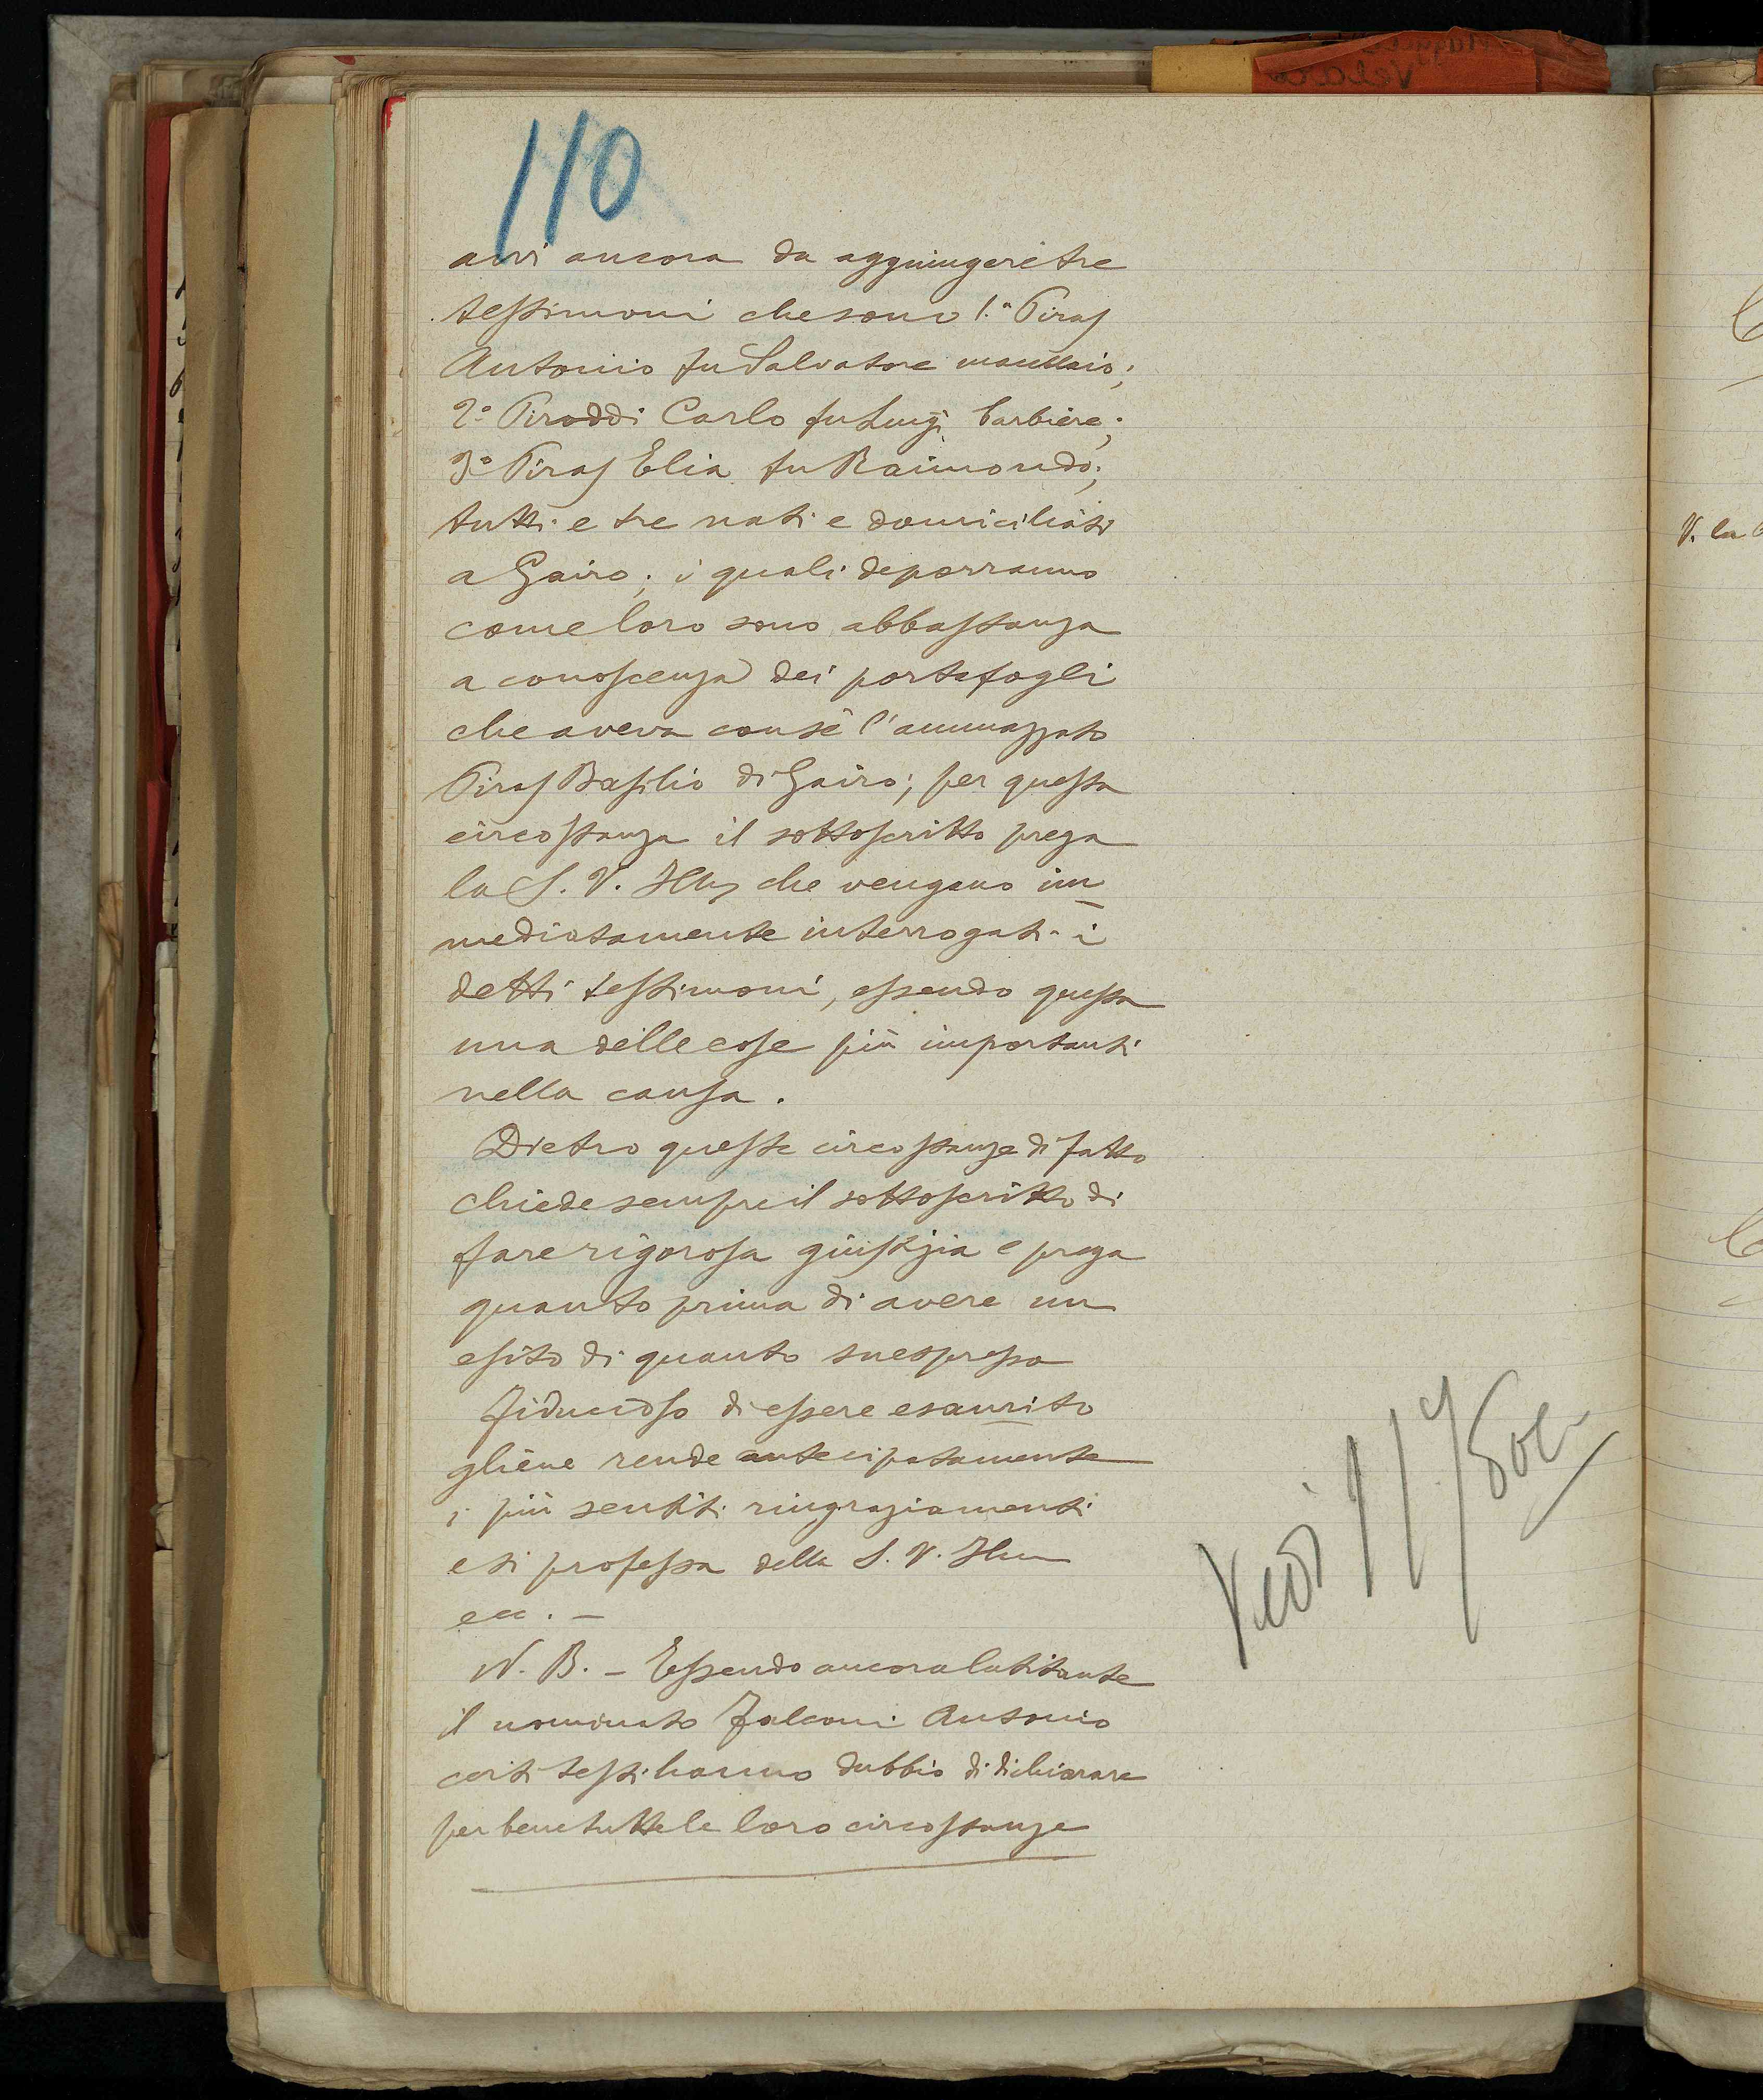 110
avvi ancora da aggiungere tre
testimoni che sono 1.° Piras
Antonio fu Salvatore macellaio;
2° Piroddi Carlo fu Luigi barbiere;
3° Piras Elia fu Raimondo;
tutti e tre nati e domiciliati
a Gairo; i quali deporranno
come loro sono abbastanza
a conoscenza dei portafogli
che aveva con sè l'ammazzato
Piras Basilio di Gairo; per questa
circostanza il sottoscritto prega
la S. V. Ill che vengano im
mediatamente interrogati i
detti testimoni, essendo questa
una delle cose più importanti
nella causa.
Dietro queste circostanze di fatto
chiede sempre il sottoscritto di
fare rigorosa giustizia e prega
quanto prima di avere un
esito di quanto suespresso
Fiducioso di essere esaurito
gliene rende antecipatamente
i più sentiti ringraziamenti
e si professa della S. V. Ill
ecc. —
N. B. - Essendo ancora latitante
il nominato Falconi Antonio
certi testi hanno dubbio di dichiarare
per bene tutte le loro circostanze
Vedi
V. la